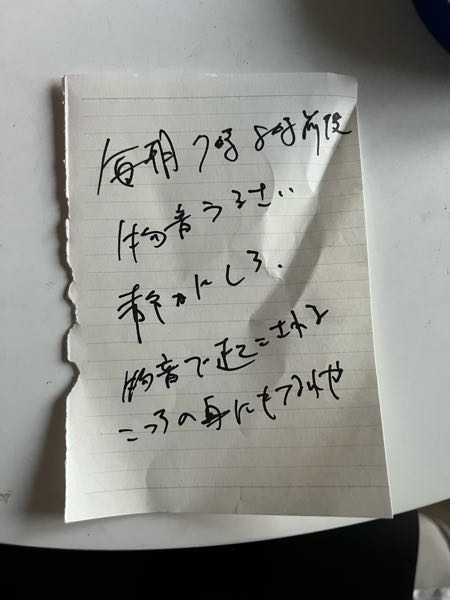 毎朝7時8時前後
物音うるさい
静かにしろ.
物音で起こされる
こっちの身にもなれや